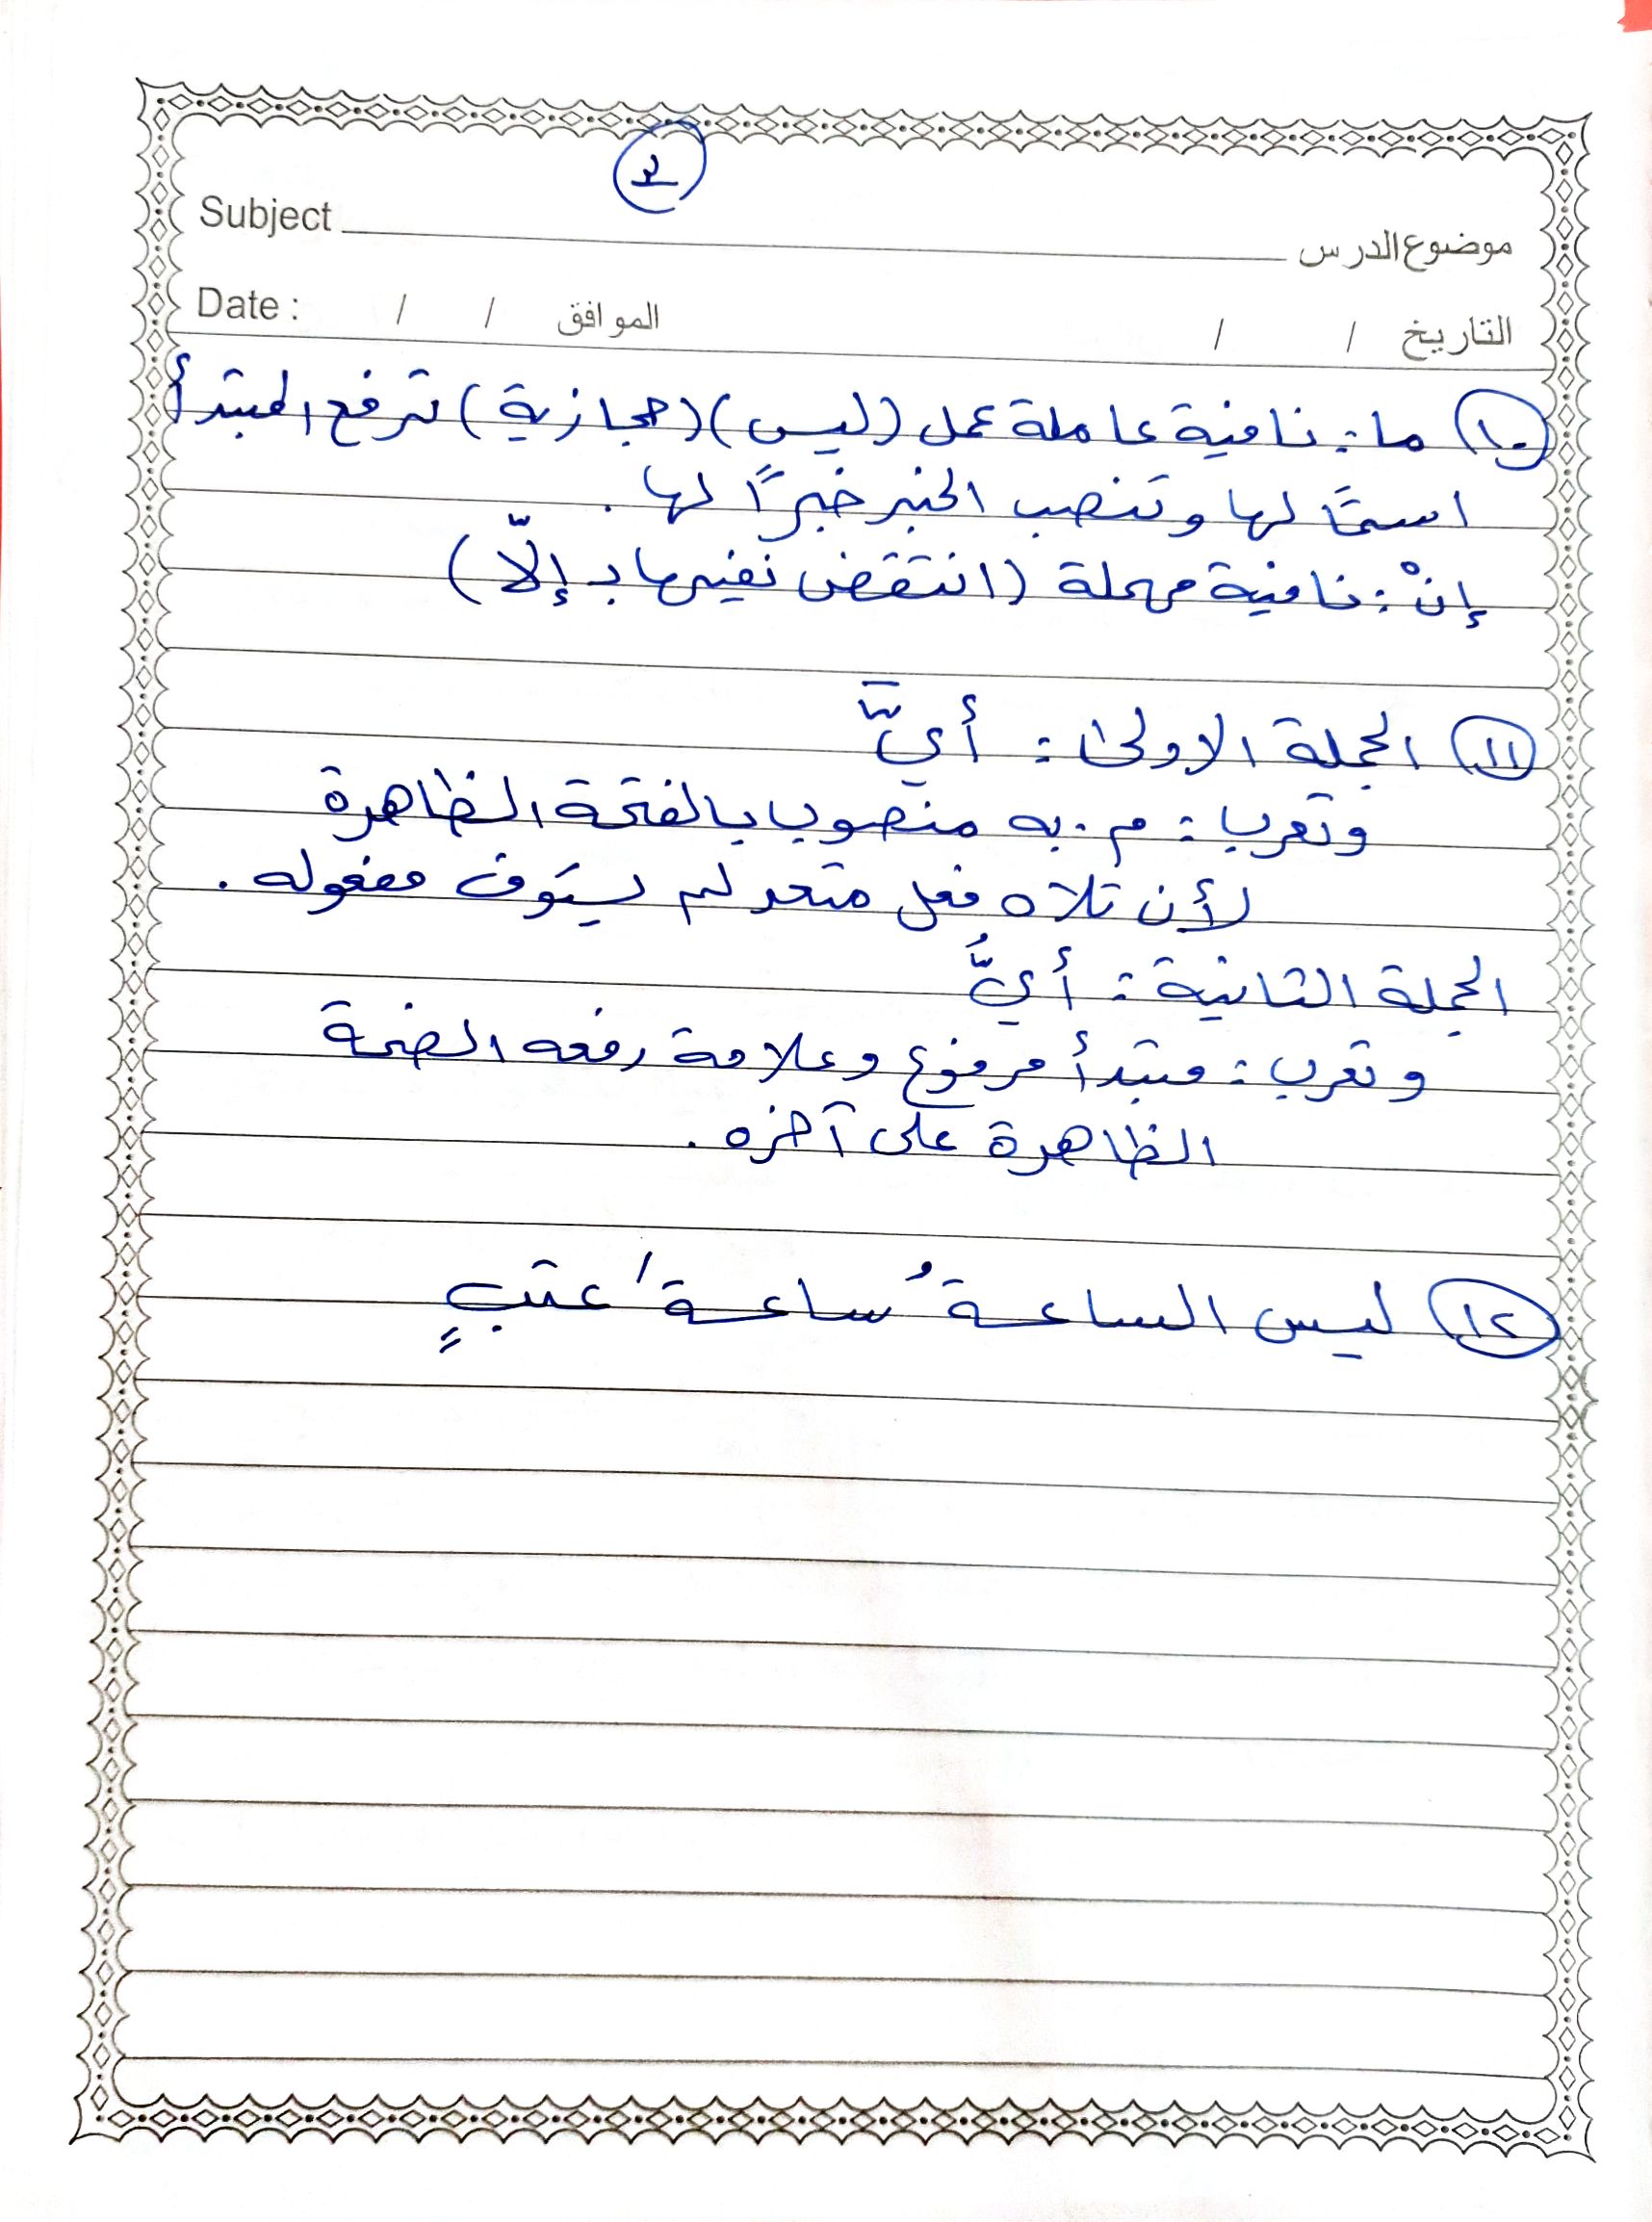 ٣
Subject موضوع الدرس
Date : / / الموافق / / التاريخ
١٠ ما: نافية عاملة عمل (ليس) (حجازية) ترفع المبتدأ
اسمًا لها وتنصب الخبر خبرًا لها .
إنْ: نافية مهملة (انتقض نفيها بـ إلّا)
١١ الجملة الاولى: أيَّ
وتعرب: م. به منصوب بالفتحة الظاهرة
لأن تلاه فعل متعد لم يستوف مفعوله .
الجملة الثانية: أيُّ
وتعرب: مبتدأ مرفوع وعلامة رفعه الضمة
الظاهرة على آخره .
١٢ ليس الساعةُ ساعةَ عتبٍ